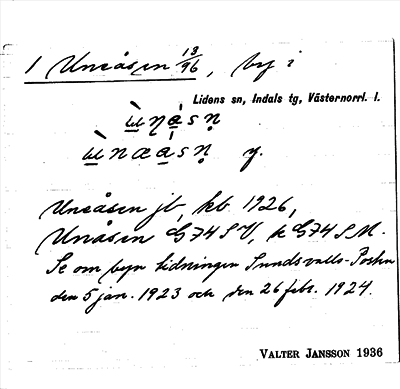 1 Uneåsen 13/96, by i
Lidens sn, Indals tg, Västernorrl. l.
y.
Uneåsen jb, kb 1926,
Unåsen G74SV, k G74SM.
Se om byn tidningen Sundsvalls-Posten
den 5 jan. 1923 och den 26 febr. 1924.
VALTER JANSSON 1936